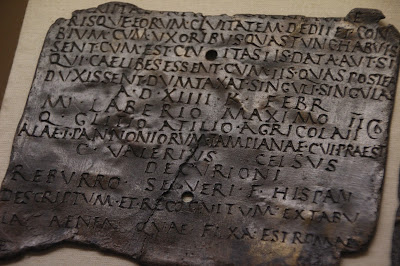 RISQVE EORVM CIVITATEM DEDIT ET CON
BIVM CVM VXORIBVS QVAS TVNC HABVIS
SENT CVM EST CIVITAS IIS DATA AVT SI
QVI CAELIBES ESSENT CVM IIS QVAS POSTEA
DVXISSENT DVMTAXAT SINGVLI SINGVLAS
A D XIIII K FEBR
M LABERIO MAXIMO II
Q GLITIO ATILIO AGRICOLA II COS
ALAE I PANNONIORVM TAMPIANAE CVI PRAEST
C VALERIVS CELSVS
DECVRIONI
REBVRRO SEVERI F HISPAN
DESCRIPTVM ET RECOGNITVM EX TABV
LA AENEA QVAE FIXA EST ROMAE